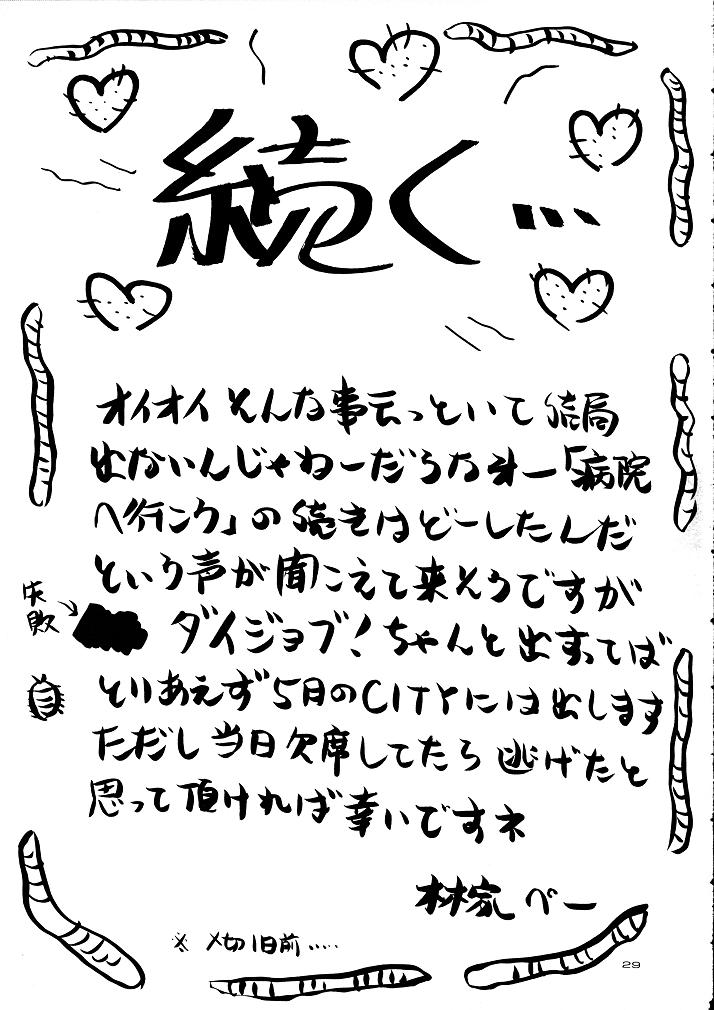 続く…
オイオイ そんな事云っといて 結局
出ないんじゃねーだろうなオー「病院
へ行こう」の 続きはどーしたんだ
という声が聞こえて来そうですが
失敗
ダイジョブ！ちゃんと出すってば
とりあえず5月のCITYには出します
ただし当日欠席してたら 逃げたと
思って頂ければ幸いですネ
林家ペー
※ 〆切1日前‥‥‥
29